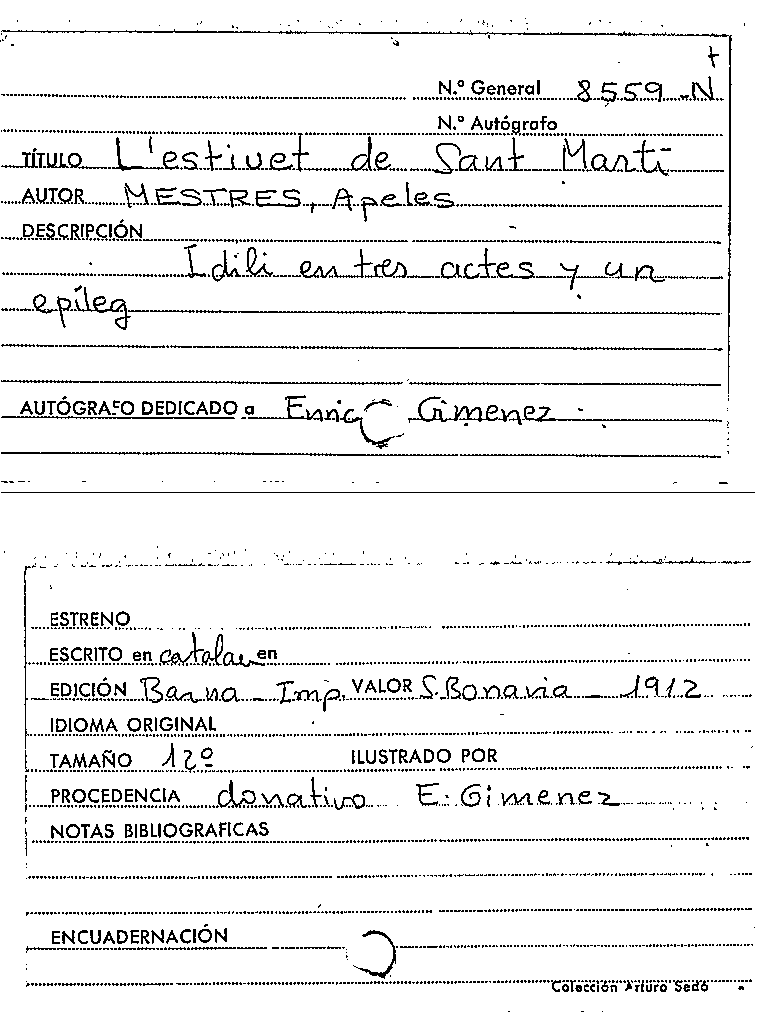 N.º General 8559-N
N.º Autógrafo
TÍTULO L'estiuet de Sant Martí
AUTOR MESTRES, Apeles
DESCRIPCIÓN
Idili en tres actes y un
epíleg
AUTÓGRAFO DEDICADO a Enric Gimenez
ESTRENO
ESCRITO en catalan en
EDICIÓN Barna - Imp. VALOR S. Bonavia - 1912
IDIOMA ORIGINAL
TAMAÑO 12º ILUSTRADO POR
PROCEDENCIA donativo E. Gimenez
NOTAS BIBLIOGRAFICAS
ENCUADERNACIÓN
Colección Arturo Sedó